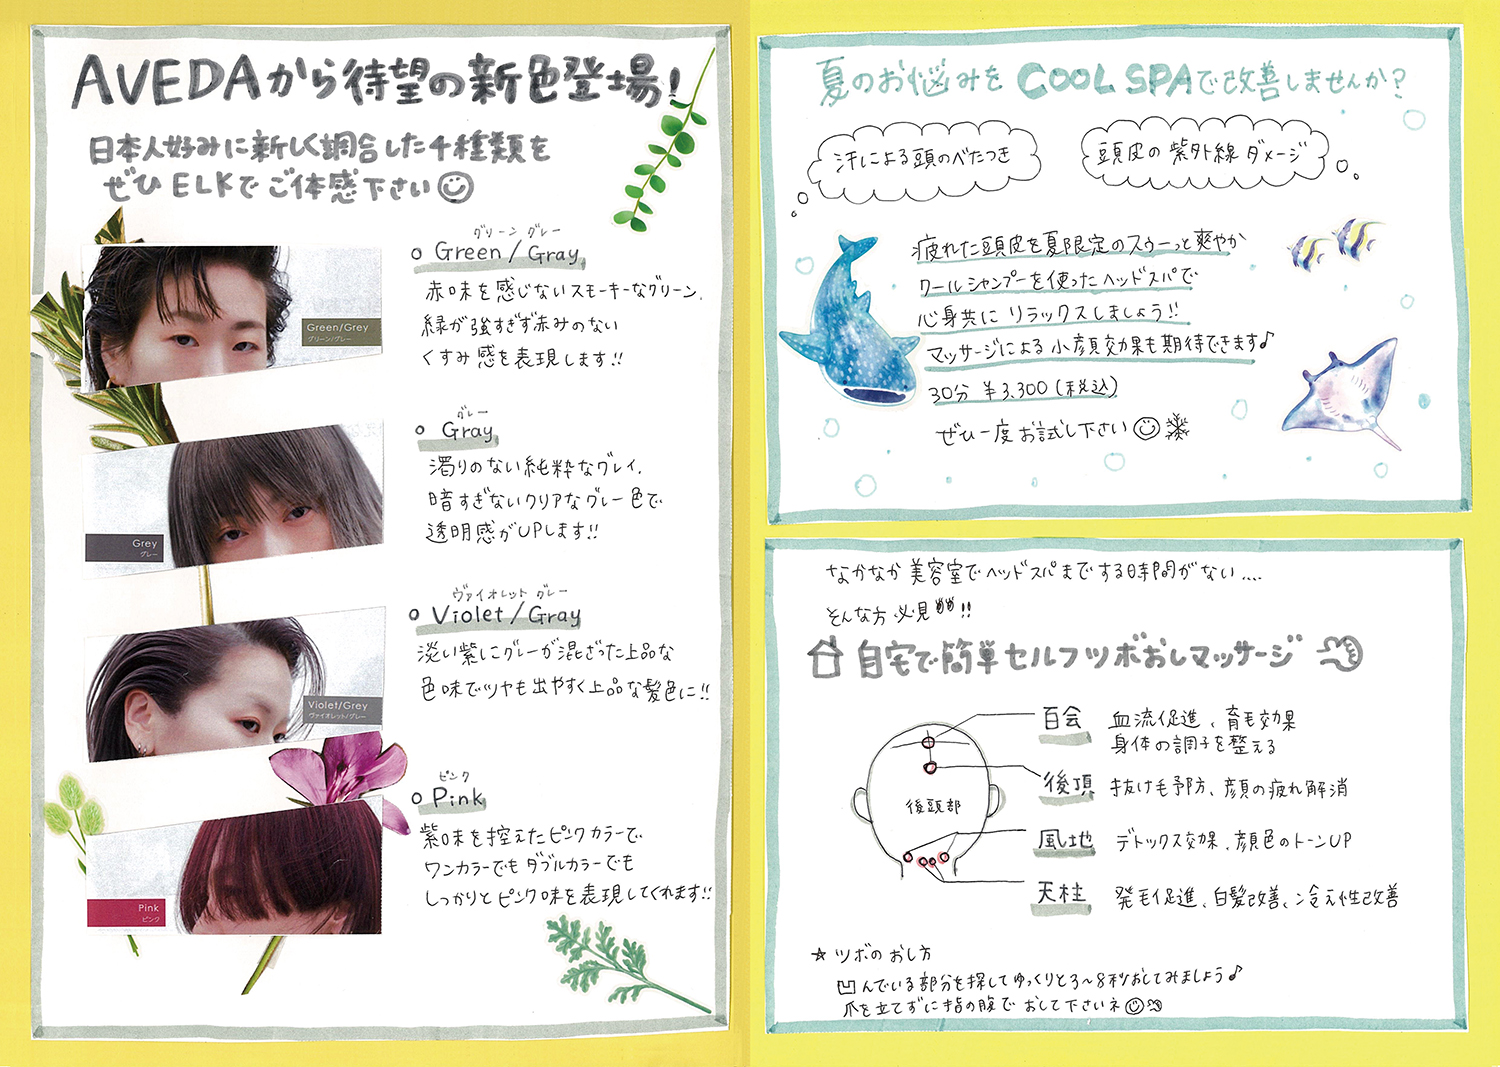 AVEDAから待望の新色登場!
日本人好みに新しく調合した4種類を
ぜひ ELKでご体感下さい
グリーン グレー
Green/Gray
赤味を感じないスモーキーなグリーン.
緑が強すぎず赤みのない
くすみ感を表現します!!
Green/Grey
グリーン/グレー
グレー
Gray
濁りのない純粋なグレイ.
暗すぎないクリアなグレー色で
透明感がUPします!!
Grey
グレー
ヴァイオレット グレー
Violet/Gray
淡い紫にグレーが混ざった上品な
色味でツヤも出やすく上品な髪色に!!
Violet/Grey
ヴァイオレット/グレー
ピンク
Pink
紫味を控えたピンクカラーで
ワンカラーでもダブルカラーでも
しっかりとピンク味を表現してくれます!!
Pink
ピンク
夏のお悩みを COOL SPAで改善しませんか?
汗による頭のべたつき
頭皮の紫外線ダメージ
疲れた頭皮を夏限定のスゥーっと爽やか
クールシャンプーを使ったヘッドスパで
心身共に リラックスしましょう!!
マッサージによる小顔効果も期待できます♪
30分 ¥3,300(税込)
ぜひ一度お試し下さい
なかなか美容室でヘッドスパまでする時間がない....
そんな方必見!!
自宅で簡単セルフツボおしマッサージ
後頭部
百会 血流促進、育毛効果
身体の調子を整える
後頂 抜け毛予防、顔の疲れ解消
風地 デトックス効果、顔色のトーンUP
天柱 発毛促進、白髪改善、冷え性改善
☆ツボのおし方
凹んでいる部分を探してゆっくりと3〜8秒おしてみましょう♪
爪を立てずに指の腹でおして下さいネ